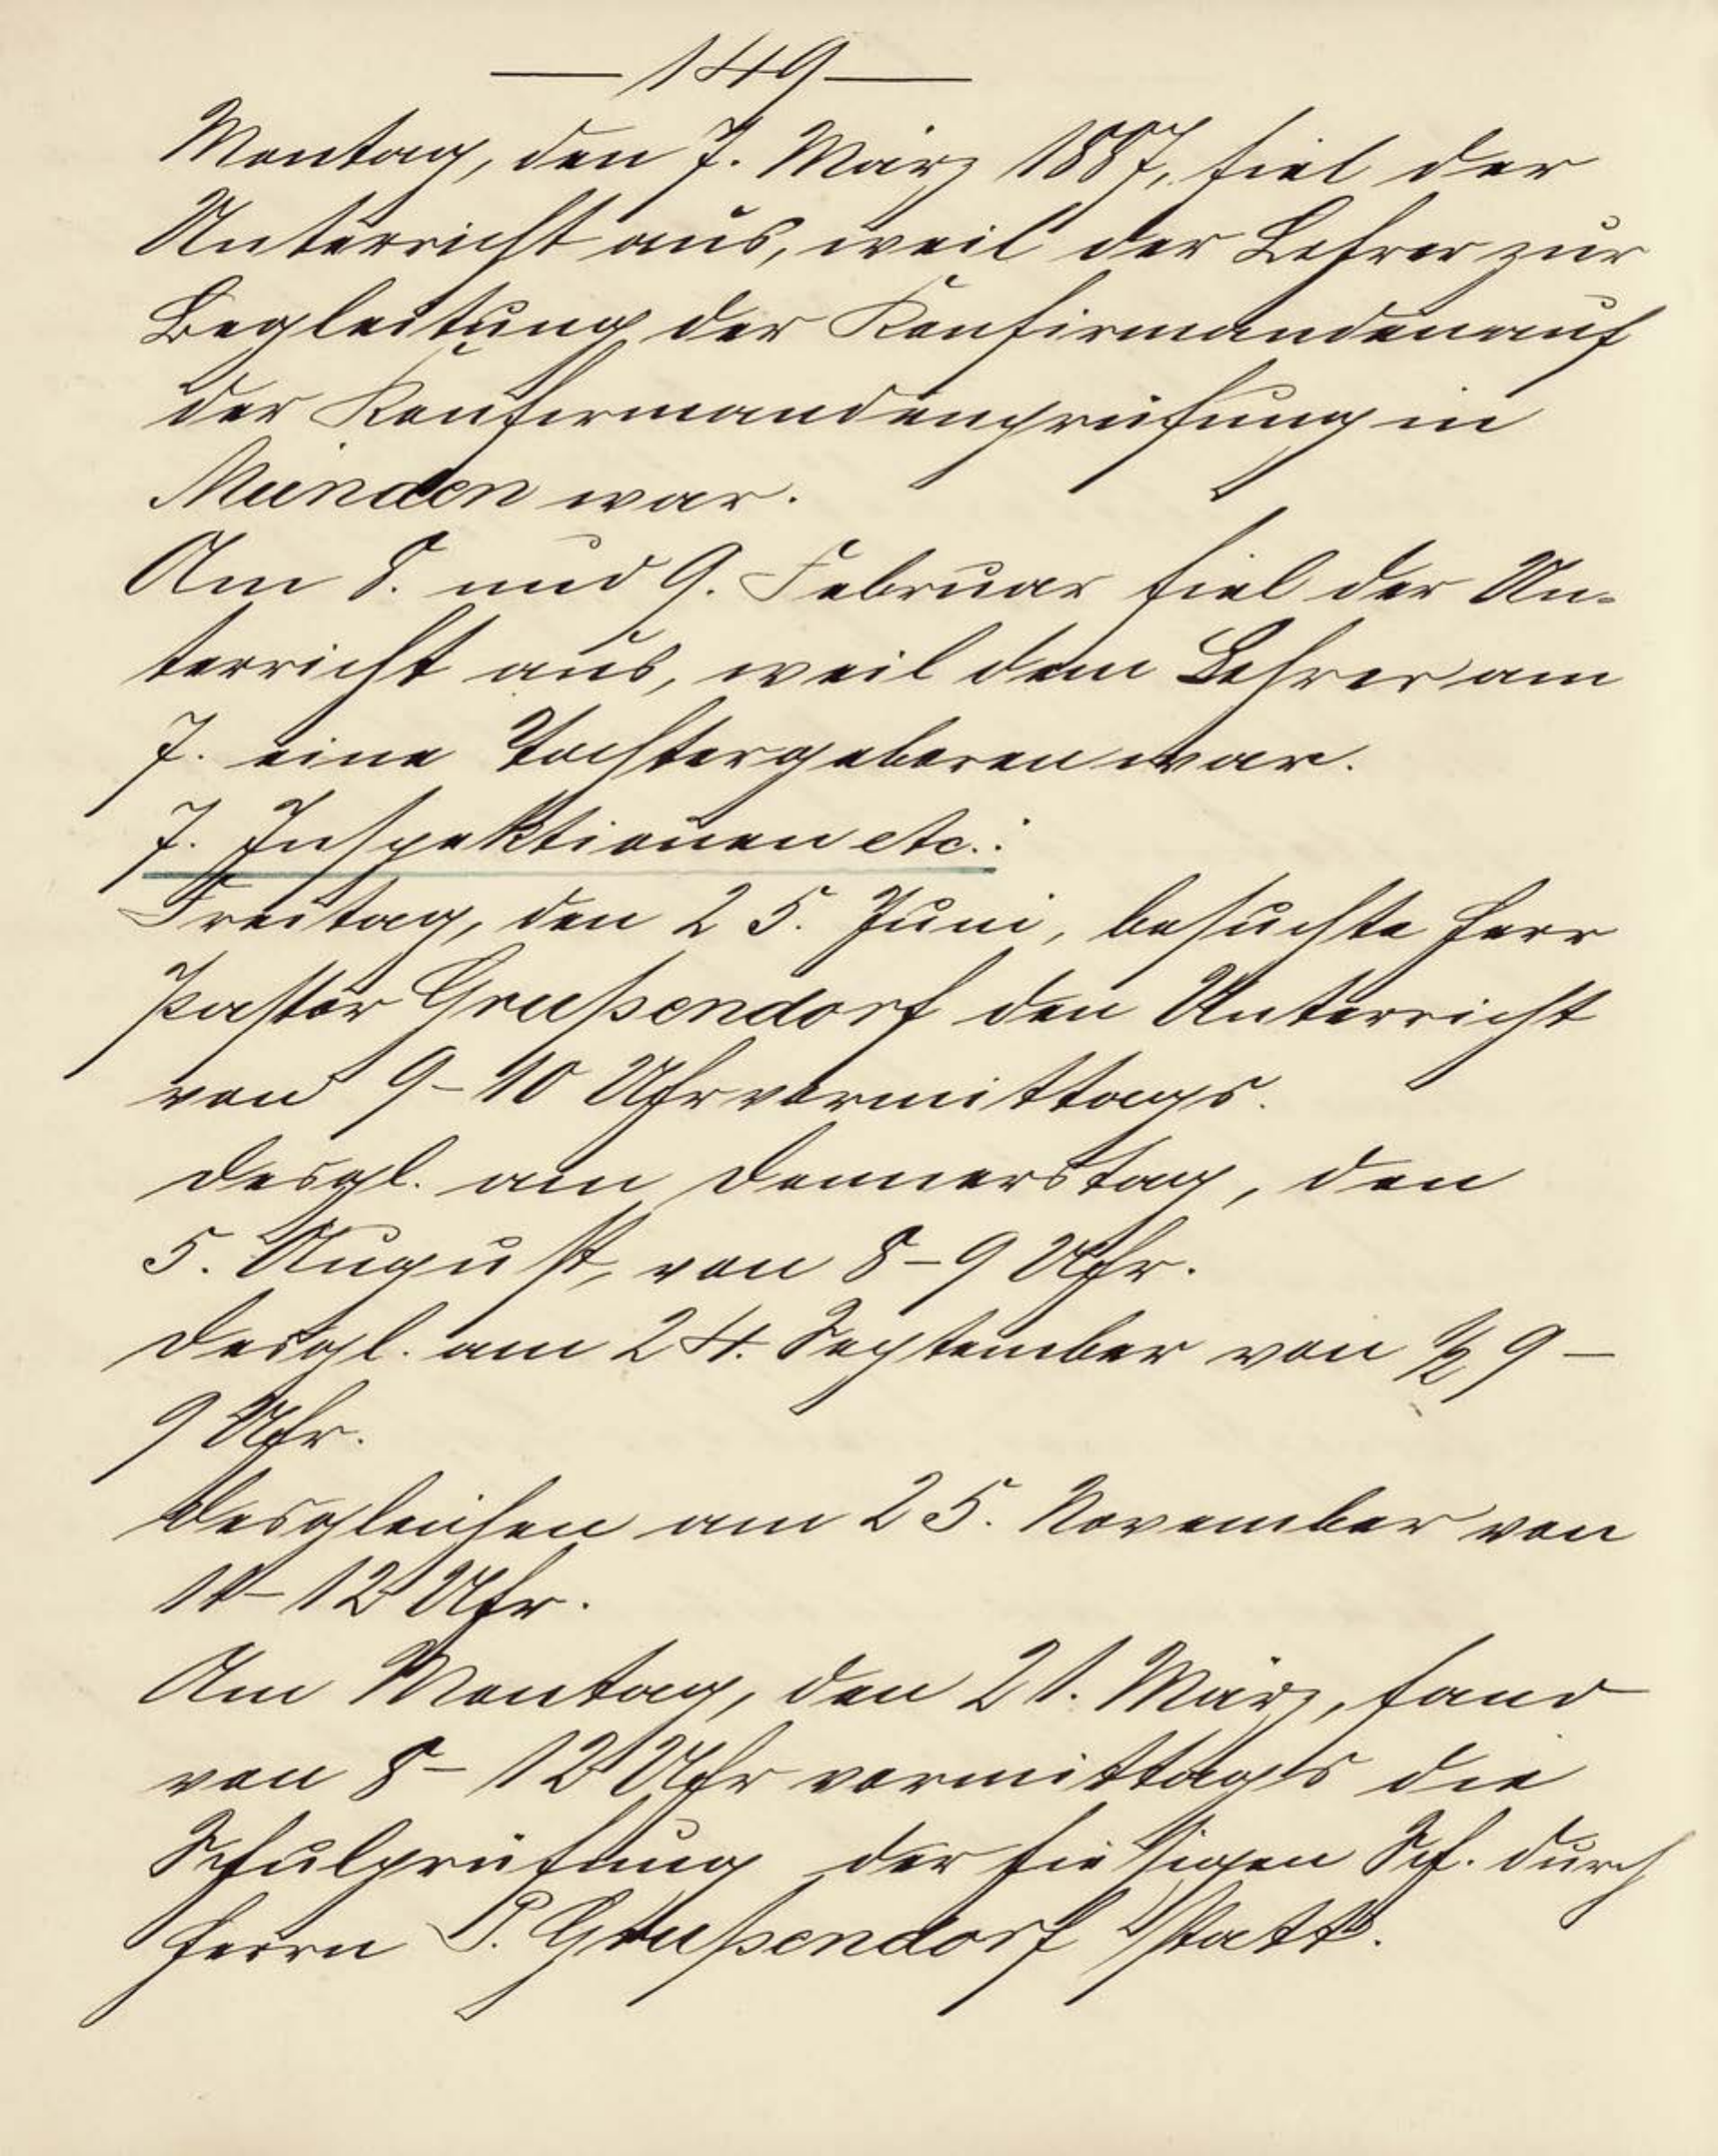 — 149 —
Montag, den 7. März 1887, fiel der
Unterricht aus, weil der Lehrer zur
Begleitung der Konfirmanden auf
der Konfirmandenprüfung in
Münden war.
Am 8. und 9. Februar fiel der Un-
terricht aus, weil dem Lehrer am
7. eine Tochter geboren war.
7. Inspektionen etc.:
Freitag, den 25. Juni, besuchte Herr
Pastor Grußendorf den Unterricht
von 9-10 Uhr vormittags.
Desgl. am Donnerstag, den
5. August, von 8-9 Uhr.
Desgl. am 24. September von ½ 9 –
9 Uhr.
Desgleichen am 25. November von
11-12 Uhr.
Am Montag, den 21. März, fand
von 8-12 Uhr vormittags die
Schulprüfung der hiesigen Sch. durch
Herrn P. Grußendorf statt.